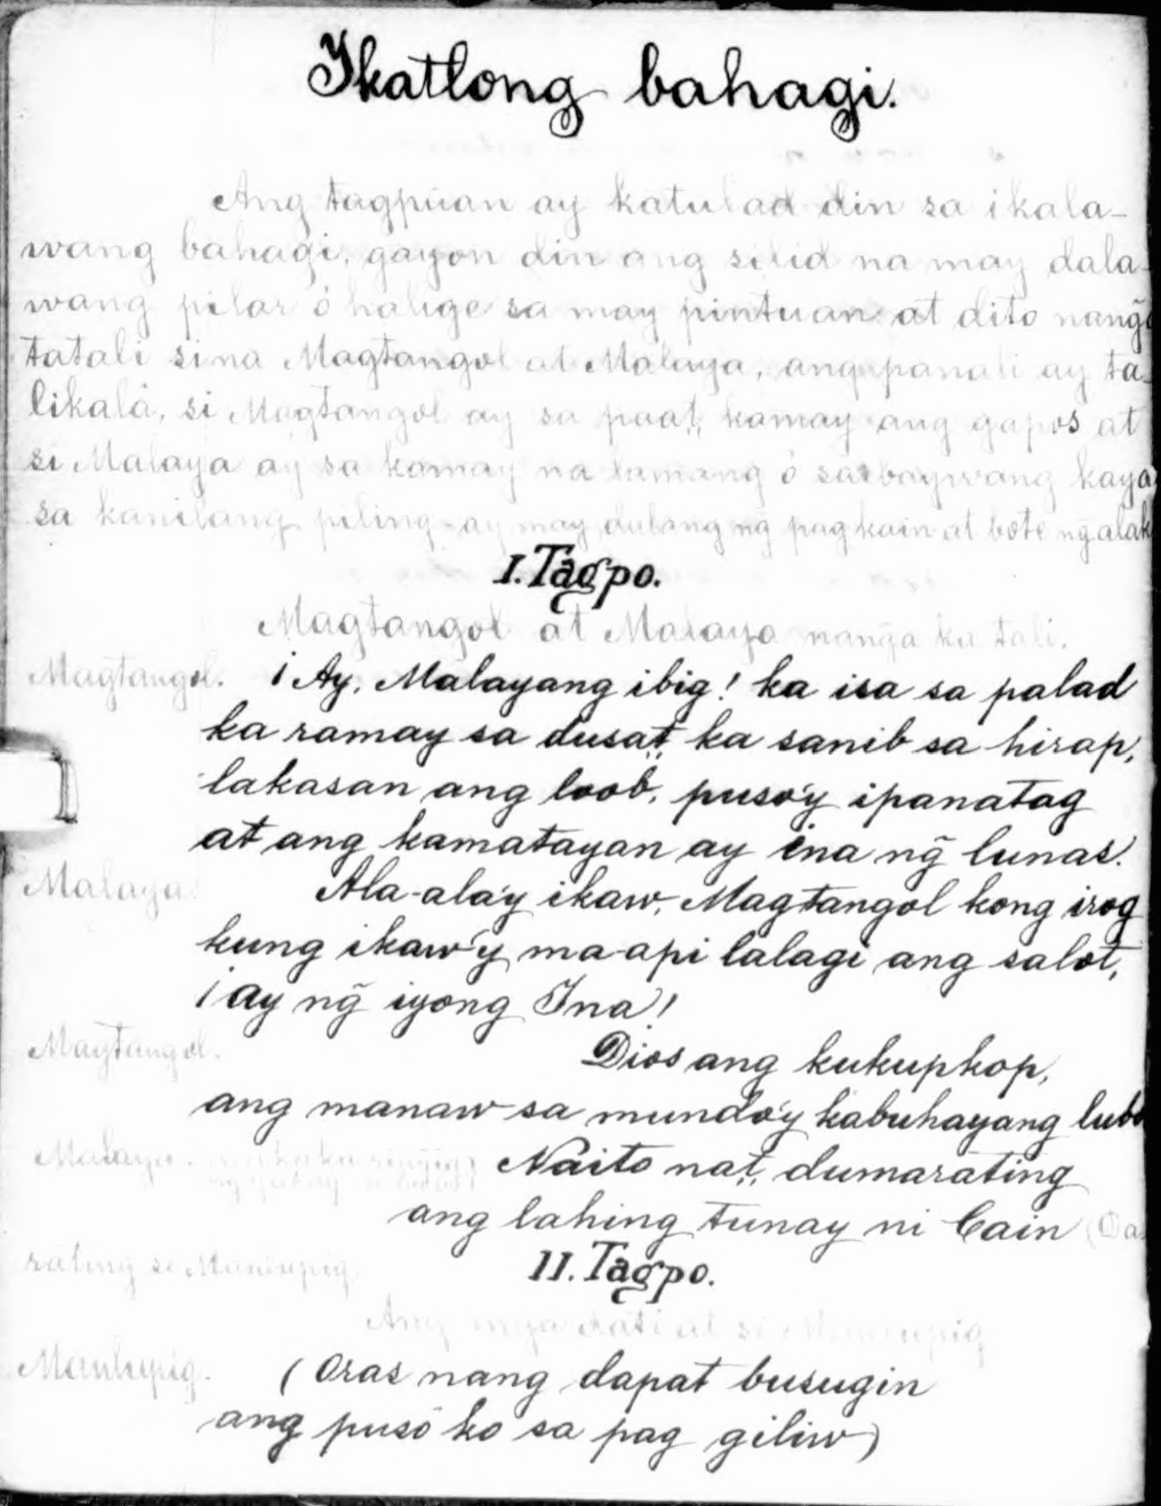 Ikatlong bahagi.
Ang tagpuan ay katulad din sa ikala-
wang bahagi, gayon din ang silid na may dala-
wang pilar ó halige sa may pintuan at dito nang̃a
tatali sina Magtangol at Malaya, ang panali ay ta-
likalâ, si Magtangol ay sa paa't, kamay ang gapos at
si Malaya ay sa kamay na lamang ó sa baywang kaya
sa kanilang piling ay may dulang ng̃ pagkain at bote ng̃ alak
I. Tagpo.
Magtangol at Malaya nang̃a ka tali.
Magtangol. ¡Ay, Malayang ibig! ka isa sa palad
ka ramay sa dusa't, ka sanib sa hirap,
lakasan ang loob, puso'y ipanatag
at ang kamatayan ay ina ng̃ lunas.
Malaya. Ala-ala'y ikaw, Magtangol kong irog
kung ikaw'y ma-api lalagi ang salot,
¡ay ng̃ iyong Ina!
Magtangol. Dios ang kukupkop,
ang manaw sa mundo'y kabuhayang lubo
Malaya. Naito na't, dumarating
ang lahing tunay ni Cain (Da
rating si Manlupig.
II. Tagpo.
Ang mga dati at si Manlupig
Manlupig. (Oras nang dapat busugin
ang pusó ko sa pag giliw)